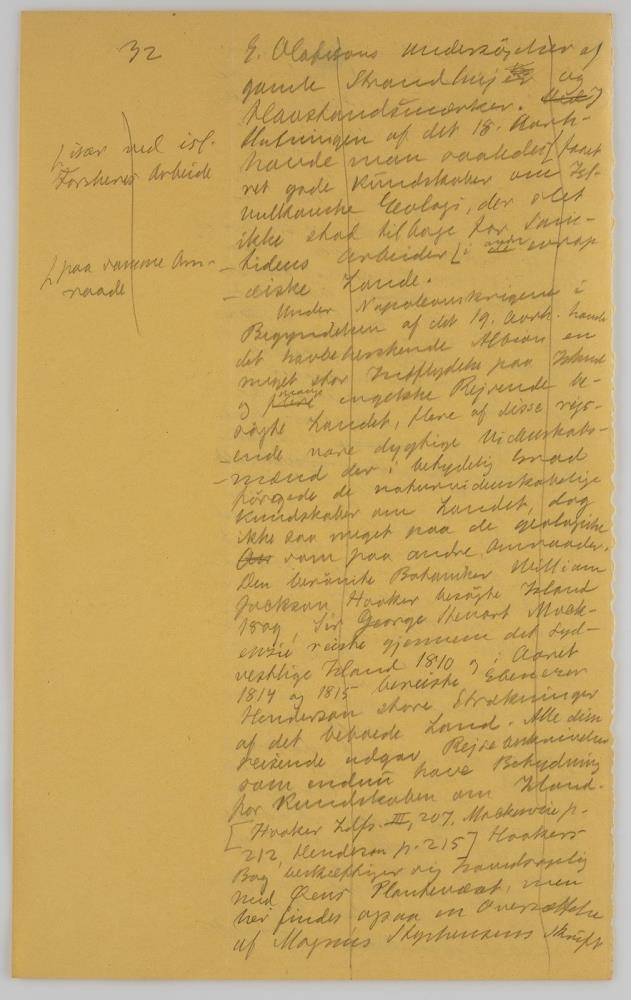 32
E. Olafssons Undersøgelser af
gamle Strandlinjer og
Havstandsmærker. Ved
Slutningen af det 18. Aarh-
havde man saaledes [faaet
[især ved isl.
Forskeres Arbeide
ret gode Kundskaber om Isl-
vulkanske Geologi, der slet
ikke stod tilbage for Sam-
tidens Arbeider [i andre europ
[paa samme Om-
raade
-æiske Lande.
Under Napoleonskrigene i
Begyndelsen af det 19. Aarh. havde
det havbeherskende Albion en
meget stor Indflydelse paa Island
og mange flere engelske Rejsende be-
søgte Landet, flere af disse rejs-
ende vare dygtige Videnskabs-
-mænd der i betydelig Grad
forøgede de naturvidenskabelige
Kundskaber om Landet, dog
ikke saa meget paa de geologiske
som paa andre Omraader.
Den berømte Botaniker William
Jackson Hooker besøgte Island
1809, Sir George Steuart Mack-
enzie reiste gjennem det Syd-
vestlige Island 1810 og i Aaret
1814 og 1815 bereiste Ebenezer
Henderson store Strækninger
af det beboede Land. Alle disse
reisende udgav Rejse
som endnu have Betydning
for Kundskaben om Island.
[Hooker Ldfs. III, 207, Mackenzie p.
212, Henderson p. 215] Hookers
Bog beskæftiger sig hovedsagelig
med Øens Plantevæxt, men
her findes ogsaa en Oversættelse
af Magnús Stephensens Skrift